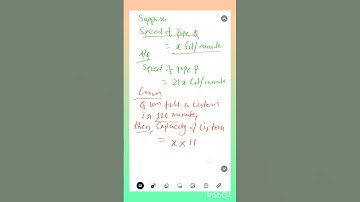 Suppose
Speed of pipe Q
= x lit/minute
Speed of pipe P
= 21x lit/minute
Given
Q can fill a cistern
in 110 minutes
then, Capacity of cistern
= x × 11
InShOt